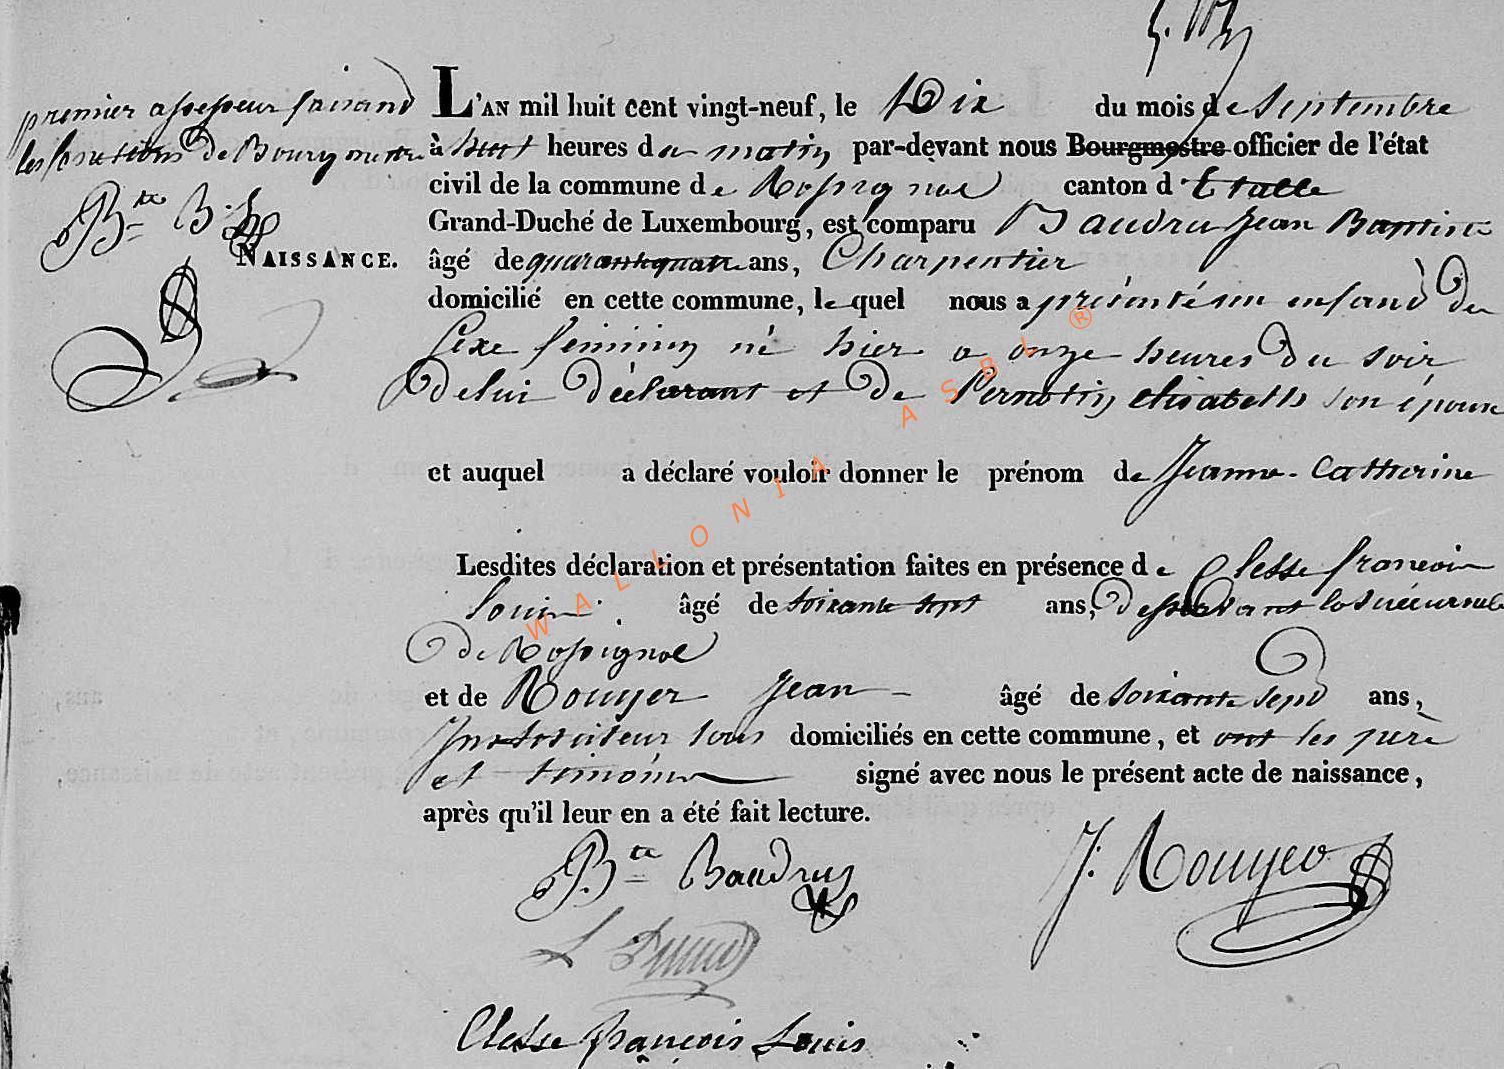 premier assesseur faisand
les fonctions de Bourgmestre
Bte B.
NAISSANCE.
L'AN mil huit cent vingt-neuf, le Dix du mois de Septembre
à huit heures du matin par-devant nous Bourgmestre officier de l'état
civil de la commune de Rossignol canton d'Etalle
Grand-Duché de Luxembourg, est comparu Baudru Jean Baptiste
âgé de quarantequatre ans, Charpentier
domicilié en cette commune, lequel nous a présenté un enfand du
sexe féminin né hier a onze heures du soir
de lui déclarant et de Pernotin elisabeth son épouse
et auquel a déclaré vouloir donner le prénom de Jeanne-Catherine
Lesdites déclaration et présentation faites en présence de Clesse francois
Louis âgé de soixante sept ans, desservant la succursale
de Rossignol
et de Rouyer Jean - âgé de soixante sept ans,
Instituteur tous domiciliés en cette commune, et ont les père
et témoins signé avec nous le présent acte de naissance,
après qu'il leur en a été fait lecture.
Bte Baudruy
J. Rouyer
Clesse françois Louis
WALLONIA ASBL ®